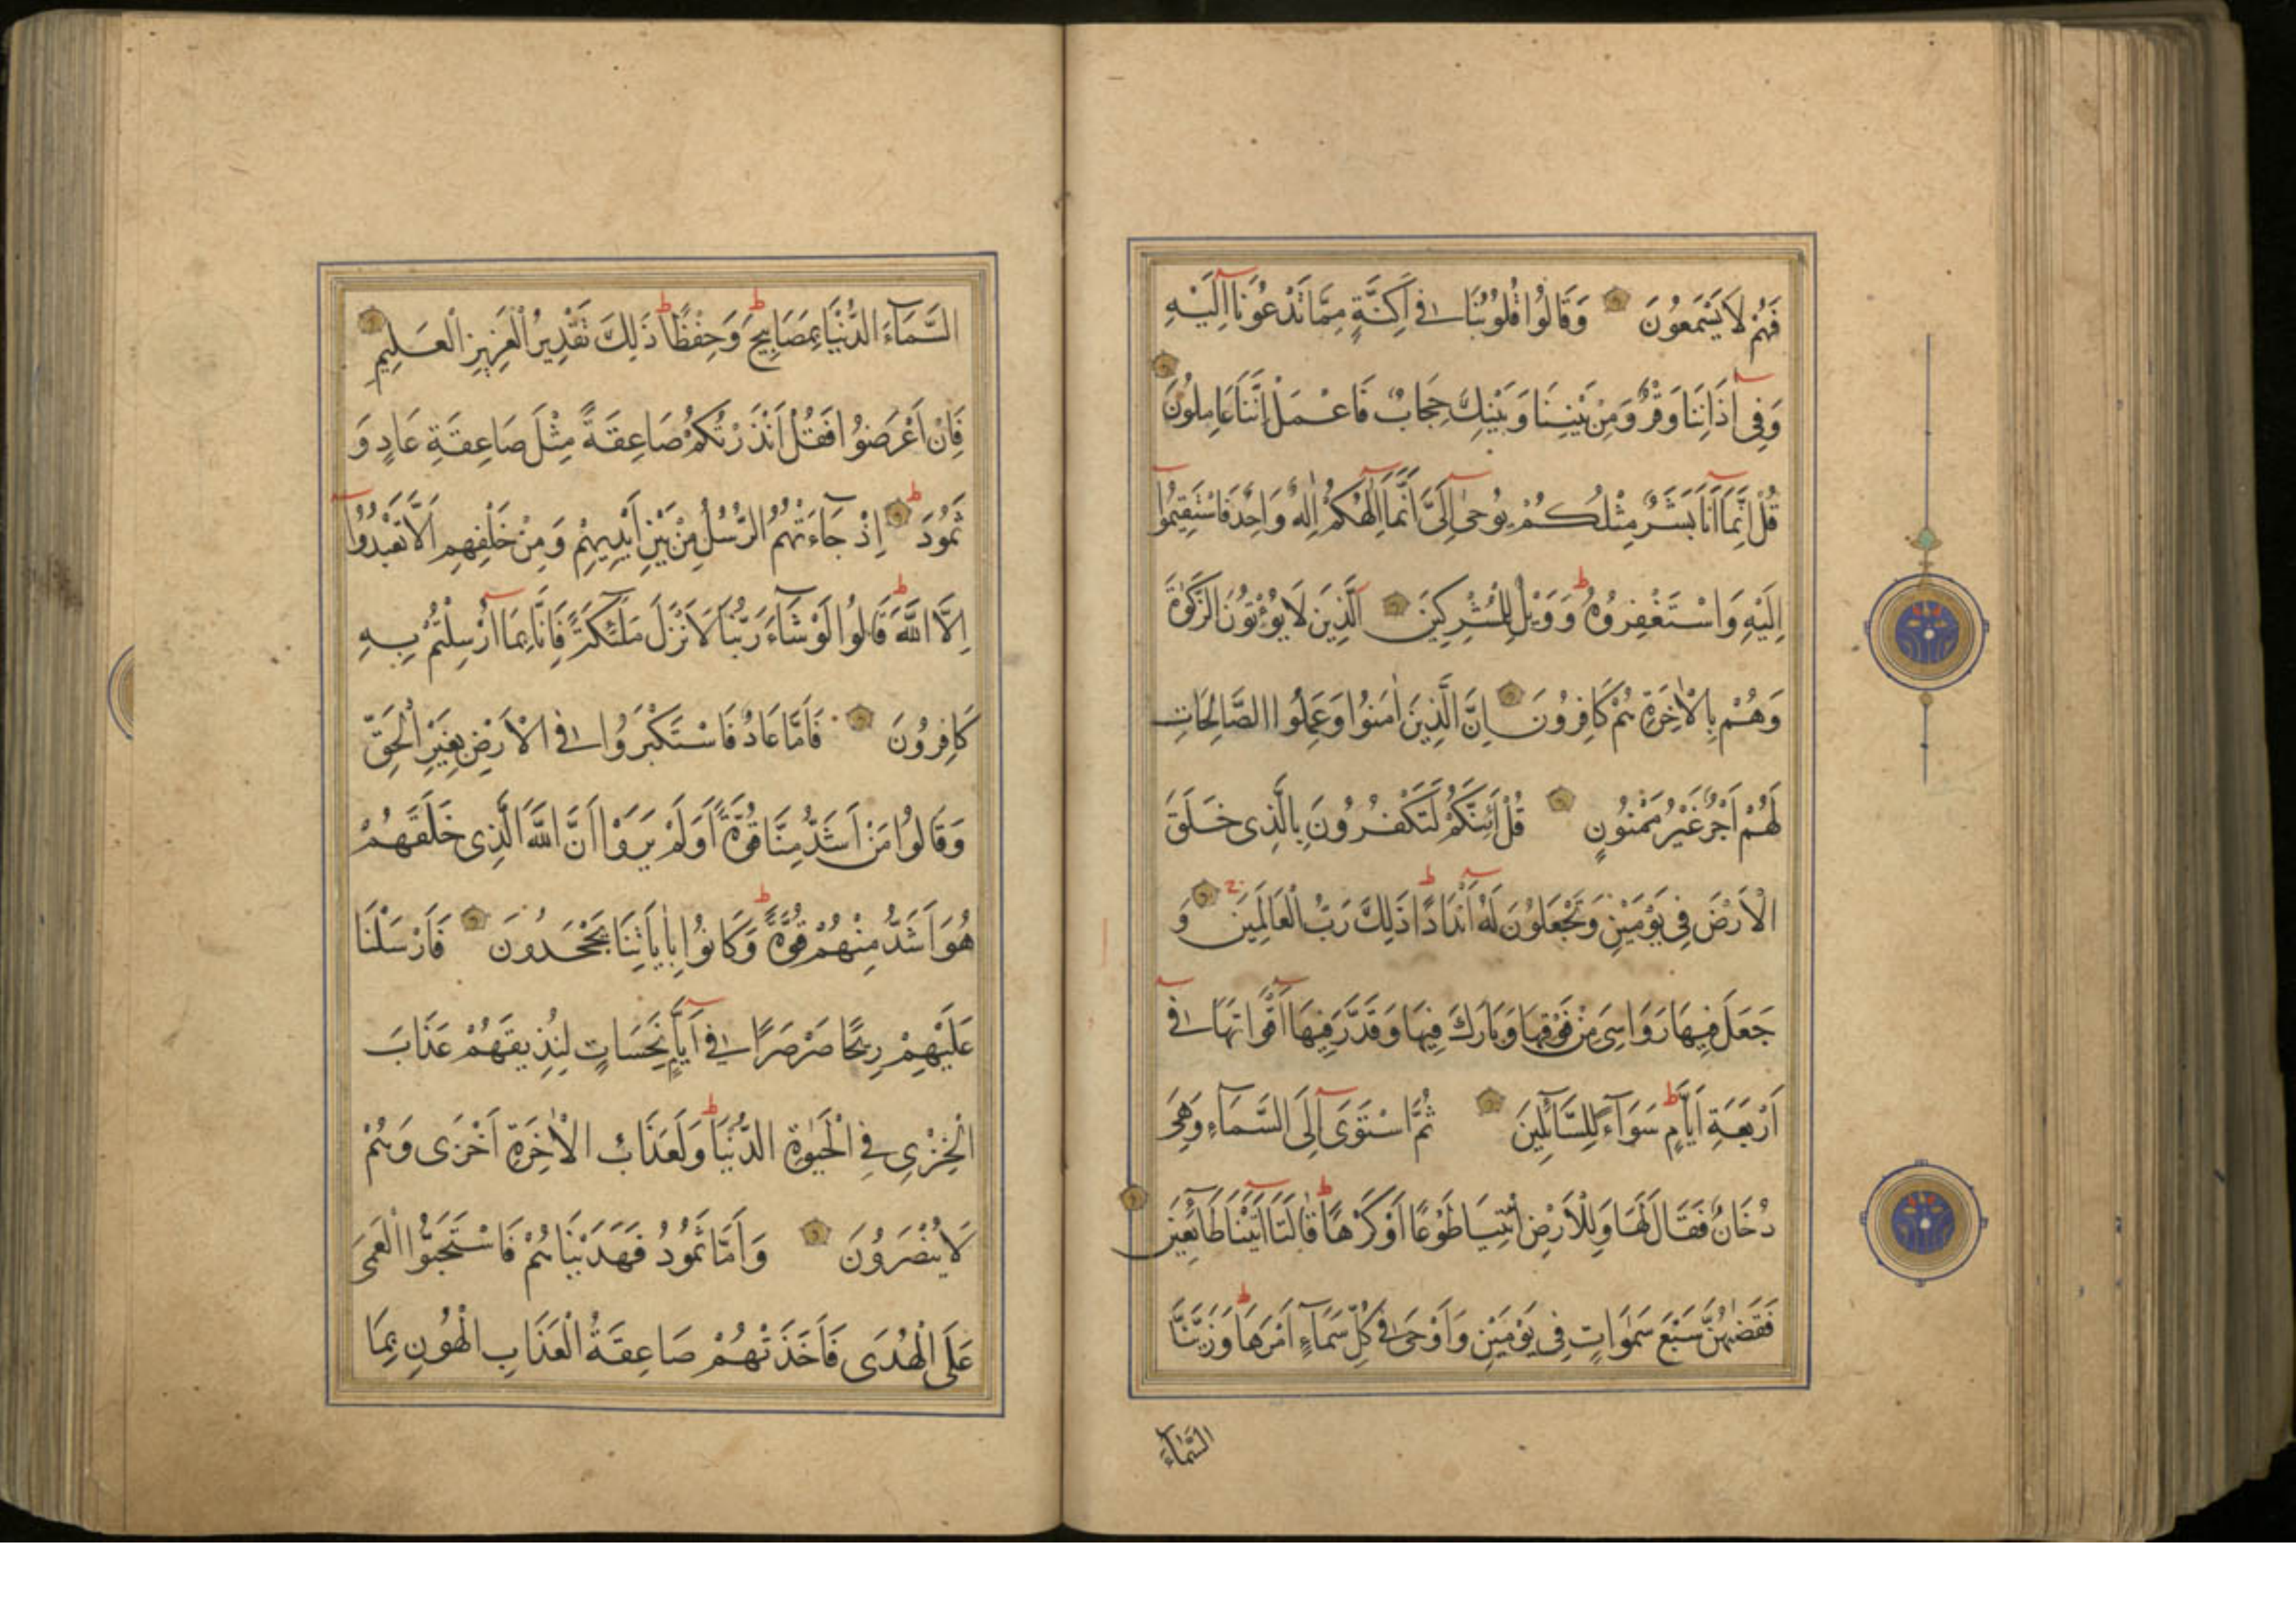 فَهُمْ لَا يَسْمَعُونَ وَقَالُوا قُلُوبُنَا فِي أَكِنَّةٍ مِمَّا تَدْعُونَا إِلَيْهِ
وَفِي آذَانِنَا وَقْرٌ وَمِنْ بَيْنِنَا وَبَيْنِكَ حِجَابٌ فَاعْمَلْ إِنَّنَا عَامِلُونَ
قُلْ إِنَّمَا أَنَا بَشَرٌ مِثْلُكُمْ يُوحَى إِلَيَّ أَنَّمَا إِلَٰهُكُمْ إِلَٰهٌ وَاحِدٌ فَاسْتَقِيمُوا
إِلَيْهِ وَاسْتَغْفِرُوهُ ط وَوَيْلٌ لِلْمُشْرِكِينَ الَّذِينَ لَا يُؤْتُونَ الزَّكٰوةَ
وَهُمْ بِالْاٰخِرَةِ هُمْ كَافِرُونَ إِنَّ الَّذِينَ اٰمَنُوا وَعَمِلُوا الصَّالِحَاتِ
لَهُمْ أَجْرٌ غَيْرُ مَمْنُونٍ قُلْ أَئِنَّكُمْ لَتَكْفُرُونَ بِالَّذِى خَلَقَ
الْأَرْضَ فِي يَوْمَيْنِ وَتَجْعَلُونَ لَهُ أَنْدَادًا ط ذَلِكَ رَبُّ الْعَالَمِينَ وَ
جَعَلَ فِيهَا رَوَاسِيَ مِنْ فَوْقِهَا وَبَارَكَ فِيهَا وَقَدَّرَ فِيهَا أَقْوَاتَهَا فِي
أَرْبَعَةِ أَيَّامٍ ط سَوَآءً لِلسَّآئِلِينَ ثُمَّ اسْتَوَى إِلَى السَّمَآءِ وَهِيَ
دُخَانٌ فَقَالَ لَهَا وَلِلْأَرْضِ ائْتِيَا طَوْعًا أَوْ كَرْهًا ط قَالَتَا أَتَيْنَا طَآئِعِينَ
فَقَضٰهُنَّ سَبْعَ سَمٰوَاتٍ فِي يَوْمَيْنِ وَأَوْحَى فِي كُلِّ سَمَآءٍ أَمْرَهَا ط وَزَيَّنَّا
السَّمَآءَ
السَّمَآءَ الدُّنْيَا بِمَصَابِيحَ ط وَحِفْظًا ط ذَلِكَ تَقْدِيرُ الْعَزِيزِ الْعَلِيمِ
فَإِنْ أَعْرَضُوا فَقُلْ أَنْذَرْتُكُمْ صَاعِقَةً مِثْلَ صَاعِقَةِ عَادٍ وَ
ثَمُودَ ط إِذْ جَآءَتْهُمُ الرُّسُلُ مِنْ بَيْنِ أَيْدِيهِمْ وَمِنْ خَلْفِهِمْ أَلَّا تَعْبُدُوا
إِلَّا اللَّهَ ط قَالُوا لَوْ شَآءَ رَبُّنَا لَأَنْزَلَ مَلٰٓئِكَةً فَإِنَّا بِمَا أُرْسِلْتُمْ بِهِ
كَافِرُونَ فَأَمَّا عَادٌ فَاسْتَكْبَرُوا فِي الْأَرْضِ بِغَيْرِ الْحَقِّ
وَقَالُوا مَنْ أَشَدُّ مِنَّا قُوَّةً أَوَلَمْ يَرَوْا أَنَّ اللَّهَ الَّذِى خَلَقَهُمْ
هُوَ أَشَدُّ مِنْهُمْ قُوَّةً ط وَكَانُوا بِاٰيَاتِنَا يَجْحَدُونَ فَأَرْسَلْنَا
عَلَيْهِمْ رِيحًا صَرْصَرًا فِي أَيَّامٍ نَحِسَاتٍ لِنُذِيقَهُمْ عَذَابَ
الْخِزْىِ فِي الْحَيٰوةِ الدُّنْيَا ط وَلَعَذَابُ الْاٰخِرَةِ أَخْزَى وَهُمْ
لَا يُنْصَرُونَ وَأَمَّا ثَمُودُ فَهَدَيْنَاهُمْ فَاسْتَحَبُّوا الْعَمَى
عَلَى الْهُدَى فَأَخَذَتْهُمْ صَاعِقَةُ الْعَذَابِ الْهُونِ بِمَا